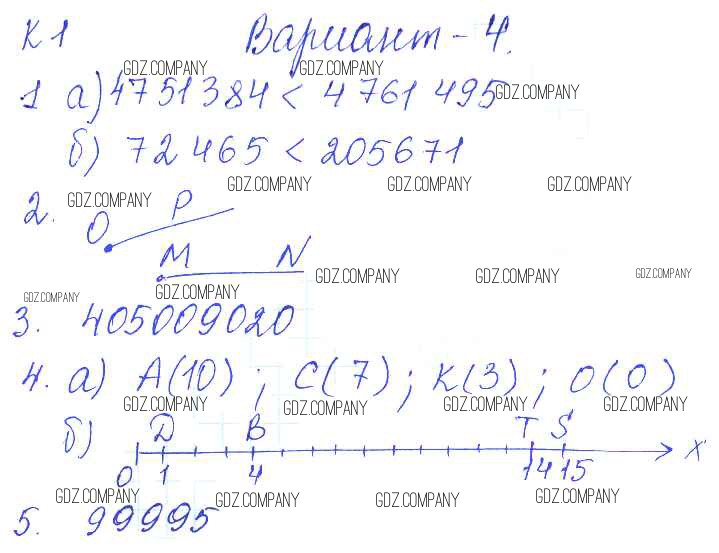 К1 Вариант - 4.
GDZ.COMPANY GDZ.COMPANY
1 а) 4751384 < 4761495 GDZ.COMPANY
б) 72465 < 205671
GDZ.COMPANY GDZ.COMPANY GDZ.COMPANY
2. GDZ.COMPANY
O P
M N
GDZ.COMPANY GDZ.COMPANY GDZ.COMPANY
GDZ.COMPANY GDZ.COMPANY
3. 405009020
4. а) A(10) ; C(7) ; K(3) ; O(0)
GDZ.COMPANY GDZ.COMPANY GDZ.COMPANY GDZ.COMPANY
б) D B T S
X
0 1 4 14 15
GDZ.COMPANY GDZ.COMPANY GDZ.COMPANY GDZ.COMPANY
5. 99995